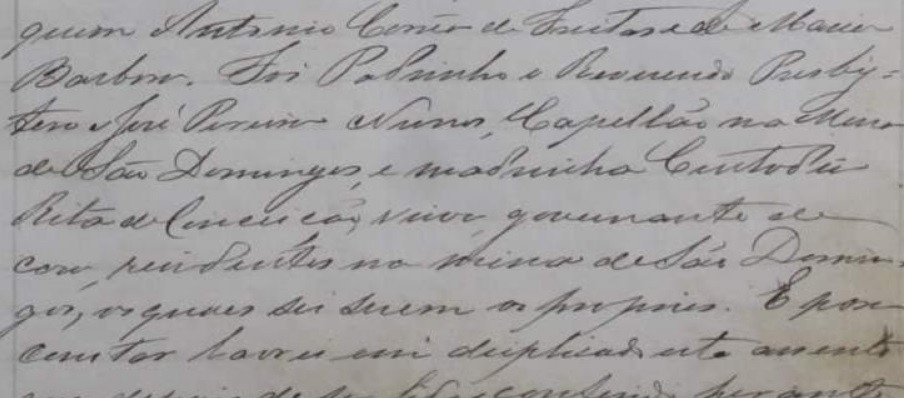 quim Antonio Corrêa de Freitas e de Maria
Barbosa. Foi Padrinho o Reverendo Presby-
tero José Pereira Nunes, Capellão na Mina
de São Domingos, e madrinha Custodia
Rita da Conceição, viuva governante de
casa, residentes na mina de São Domin-
gos, os quaes sei serem os proprios. E para
constar lavrei em duplicado este assento
que depois de ser lido e conferido perante